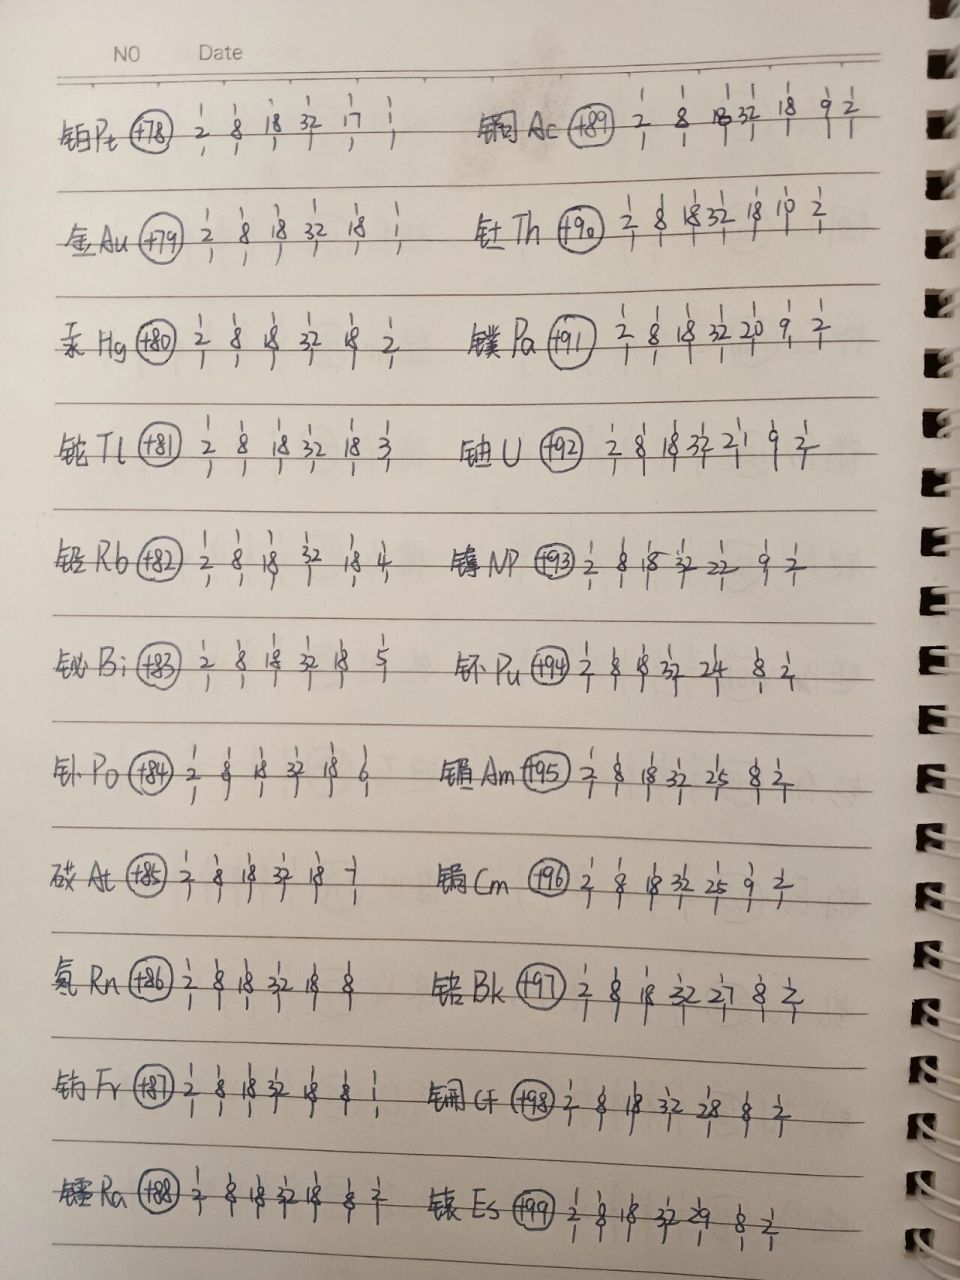 NO Date
铂Pt +78 2 8 18 32 17 1
金Au +79 2 8 18 32 18 1
汞Hg +80 2 8 18 32 18 2
铊Tl +81 2 8 18 32 18 3
铅Rb +82 2 8 18 32 18 4
铋Bi +83 2 8 18 32 18 5
钋Po +84 2 8 18 32 18 6
砹At +85 2 8 18 32 18 7
氡Rn +86 2 8 18 32 18 8
钫Fr +87 2 8 18 32 18 8 1
镭Ra +88 2 8 18 32 18 8 2
锕Ac +89 2 8 18 32 18 9 2
钍Th +90 2 8 18 32 18 10 2
镤Pa +91 2 8 18 32 20 9 2
铀U +92 2 8 18 32 21 9 2
镎NP +93 2 8 18 32 22 9 2
钚Pu +94 2 8 18 32 24 8 2
镅Am +95 2 8 18 32 25 8 2
锔Cm +96 2 8 18 32 25 9 2
锫Bk +97 2 8 18 32 27 8 2
锎Cf +98 2 8 18 32 28 8 2
锿Es +99 2 8 18 32 29 8 2